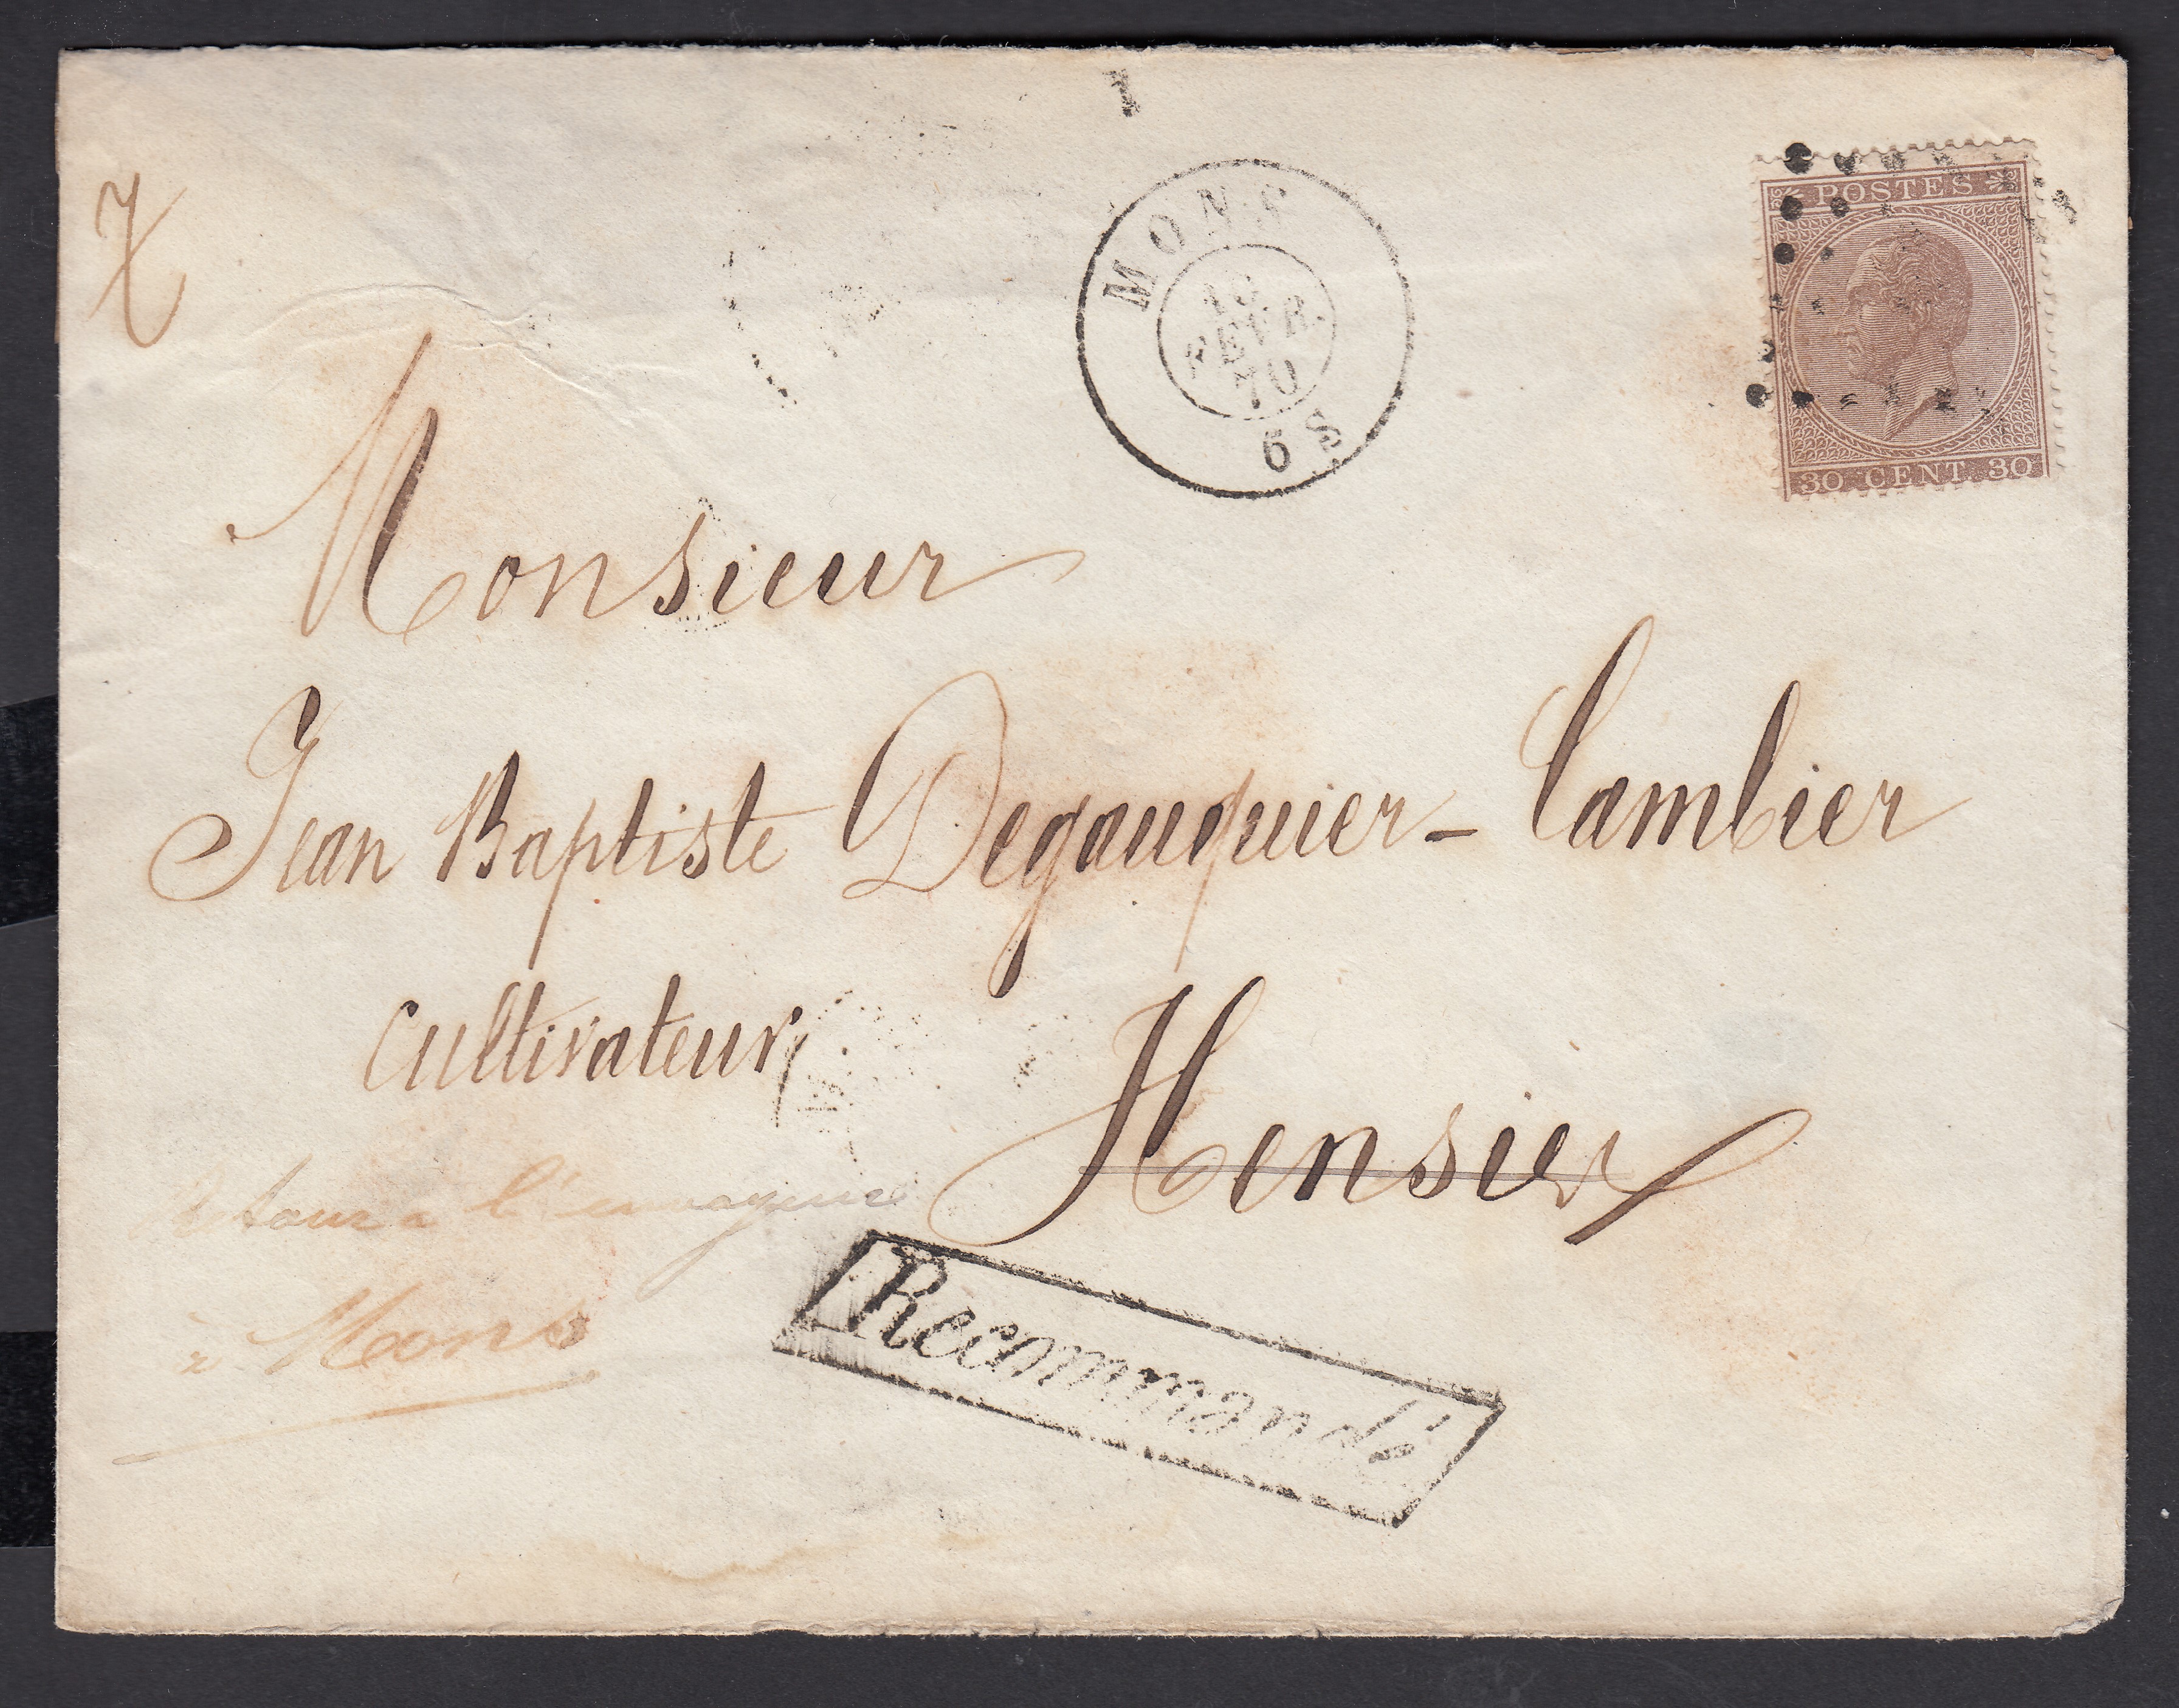 POSTES
30 CENT. 30
MONS
FEVR.
70
6 S
Monsieur
Jean Baptiste Degauquier - Cambier
cultivateur
Hensies
Retour a l'envoyeur
à Mons
Recommandé